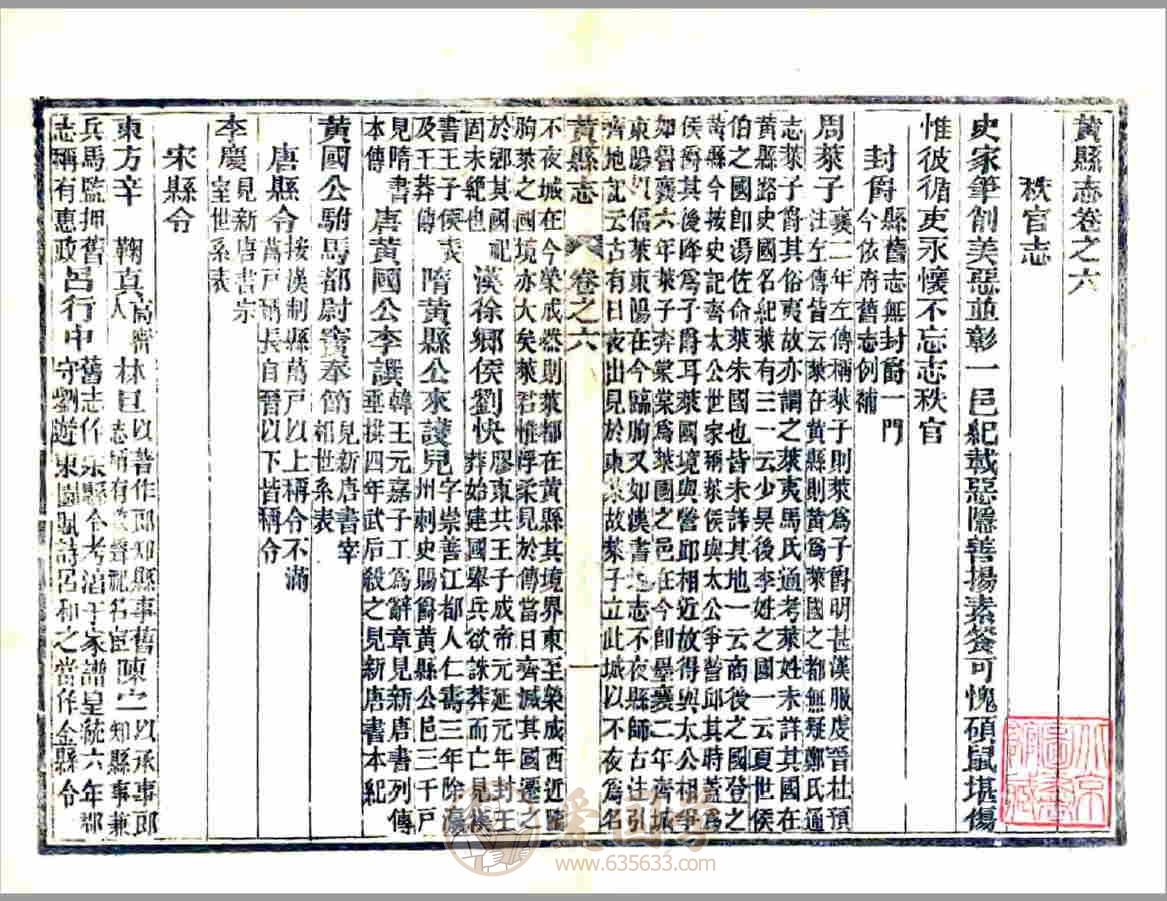 黃縣志卷之六
秩官志
史家筆削美惡並彰一邑紀載惡隱善揚素餐可愧碩鼠堪傷
惟彼循吏永懷不忘志秩官
封爵
縣舊志無封爵一門
今依府舊志例補
周萊子
襄二年左傳稱萊子則萊爲子爵明甚漢服虔晉杜預
注左傳皆云萊在黃縣則黃爲萊國之都無疑鄭氏通
志萊子爵其俗夷故亦謂之萊夷馬氏通考萊姓未詳其國在
黃縣路史國名紀萊有三一云少昊後李姓之國一云夏世侯
伯之國卽湯佐命萊朱國也皆未詳其地一云商後之國登之
黃縣今按史記齊太公世家稱萊侯與太公爭營邱其時蓋爲
侯爵其後降爲子爵耳萊國境與營邱相近故得與太公相爭
如晉襄六年萊子奔棠棠爲萊國之邑在今卽墨襄二年齊城
東陽以偪萊東陽在今臨朐又如漢書地志不夜縣師古注引
齊地記云古有日夜出見於東萊故萊子立此城以不夜爲名
黃縣志
卷之六
一
不夜城在今榮成然則萊都在黃縣其境界東至榮成西近臨
朐萊之國境亦大矣萊若惟俘柔見於傳當日齊滅其國遷
於郳其國祀
固未絶也
漢徐鄉侯劉快
膠東共王子成帝元延元年封王
莽始建國舉兵欲誅莽而亡見漢
書王子侯表
及王莽傳
隋黃縣公來護兒
字崇善江都人仁壽三年除瀛
州刺史賜爵黃縣公邑三千戸
見隋書
本傳
唐黃國公李譔
韓王元嘉子工爲辭章見新唐書列傳
垂拱四年武后殺之見新唐書本紀
黃國公駙馬都尉竇奉簡
見新唐書宰
相世系表
唐縣令
按漢制縣萬戸以上稱令不滿
萬戸稱長自晉以下皆稱令
李慶
見新唐書宗
室世系表
宋縣令
東方辛
鞠真
高密
人
林旦
以著作郎知縣事舊
志稱有聲祀名宦
陳定一
以承事郎
知縣事兼
兵馬監押舊
志稱有惠政
呂行中
舊志作宋縣令考淄于家譜皇統六年郡
守劉遊東園賦詩呂和之當作金縣令